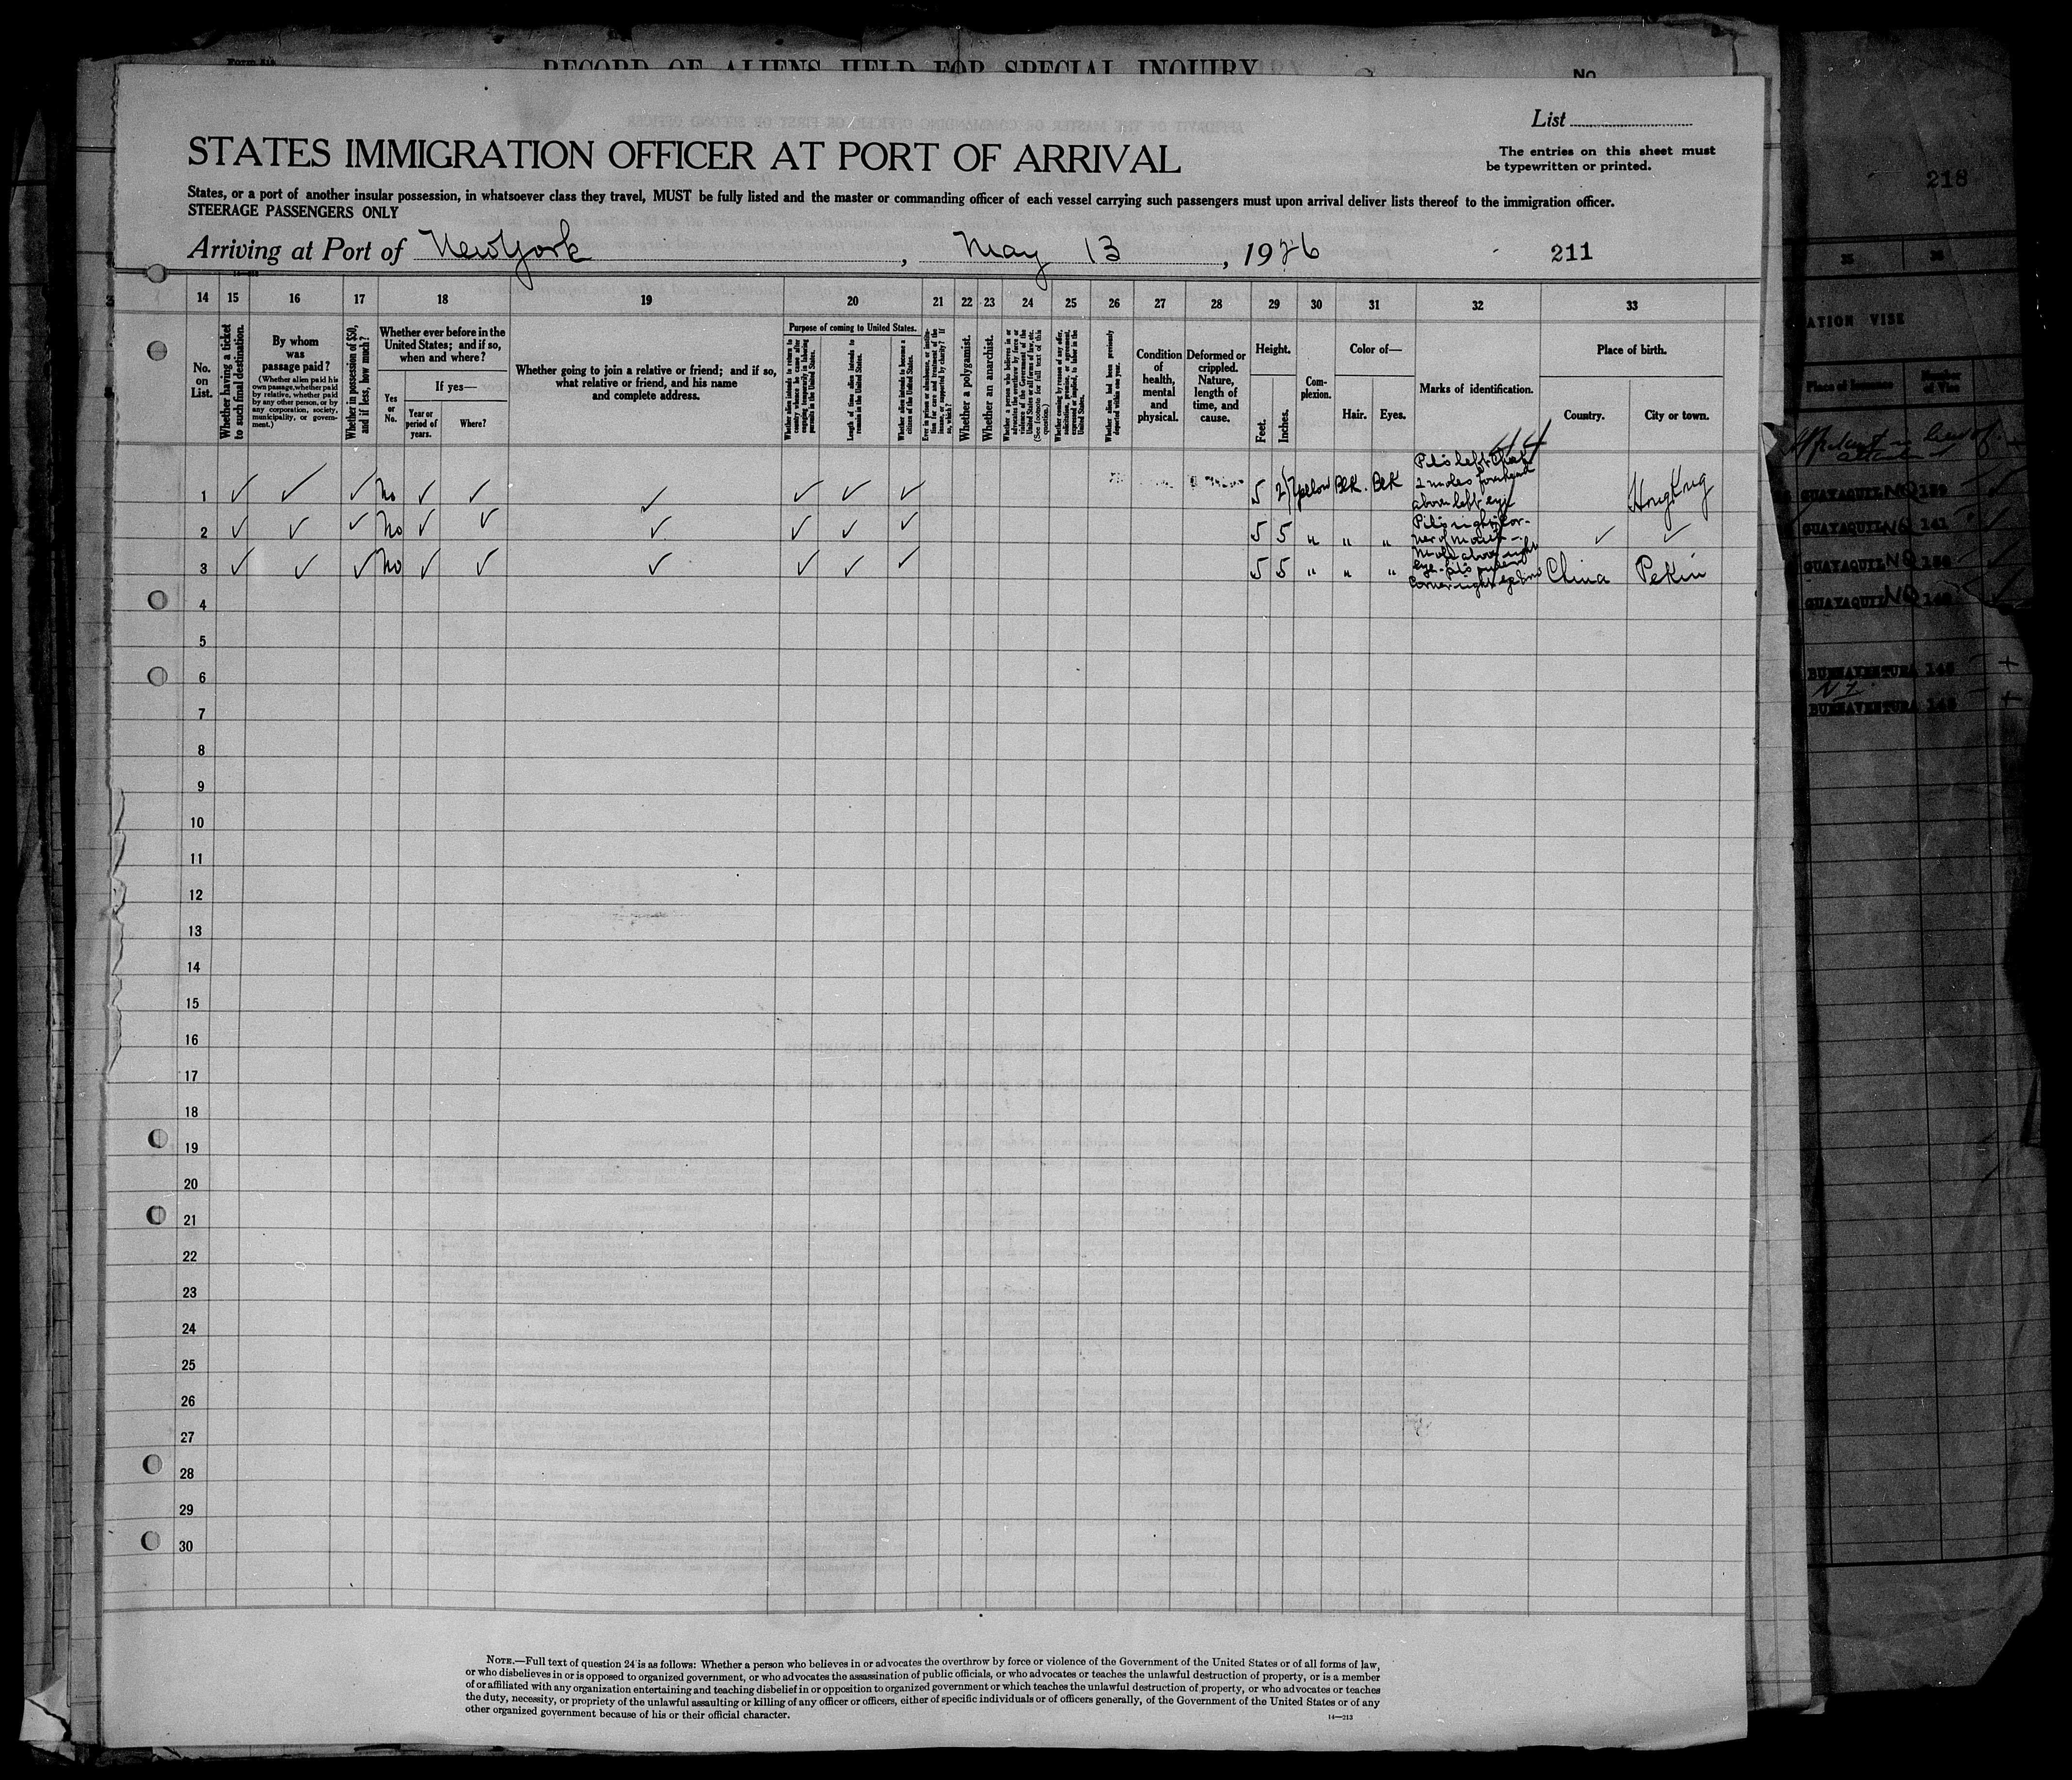 Form 518
RECORD OF ALIENS HELD FOR SPECIAL INQUIRY
No.
List
STATES IMMIGRATION OFFICER AT PORT OF ARRIVAL
The entries on this sheet must
be typewritten or printed.
States, or a port of another insular possession, in whatsoever class they travel, MUST be fully listed and the master or commanding officer of each vessel carrying such passengers must upon arrival deliver lists thereof to the immigration officer.
STEERAGE PASSENGERS ONLY
Arriving at Port of New York, May 13, 1926 211
14 15 16 17 18 19 20 21 22 23 24 25 26 27 28 29 30 31 32 33
No. on List.
Whether having a ticket to such final destination.
By whom was passage paid?
(Whether alien paid his own passage, whether paid by relative, whether paid by any other person, or by any corporation, society, municipality, or government.)
Whether in possession of $50, and if less, how much?
Whether ever before in the United States; and if so, when and where?
Yes or No.
If yes—
Year or period of years.
Where?
Whether going to join a relative or friend; and if so, what relative or friend, and his name and complete address.
Purpose of coming to United States.
Whether alien intends to return to country whence he came after engaging temporarily in laboring pursuits in the United States.
Length of time alien intends to remain in the United States.
Whether alien intends to become a citizen of the United States.
Ever in prison or almshouse, or institution for care and treatment of the insane, or supported by charity? If so, which?
Whether a polygamist.
Whether an anarchist.
Whether a person who believes in or advocates the overthrow by force or violence of the Government of the United States or all forms of law, etc. (See footnote for full text of this question.)
Whether coming by reason of any offer, solicitation, promise, or agreement, expressed or implied, to labor in the United States.
Whether alien had been previously deported within one year.
Condition of health, mental and physical.
Deformed or crippled. Nature, length of time, and cause.
Height.
Feet.
Inches.
Complexion.
Color of—
Hair.
Eyes.
Marks of identification.
Place of birth.
Country.
City or town.
1 ✓ ✓ ✓ No ✓ ✓ ✓ ✓ ✓ ✓ 5 2½ Yellow Blk. Blk Pits left cheek 2 moles forehead above left eye Hong Kong
2 ✓ ✓ ✓ No ✓ ✓ ✓ ✓ ✓ ✓ 5 5 " " " Pit right corner of mouth ✓ ✓
3 ✓ ✓ ✓ No ✓ ✓ ✓ ✓ ✓ ✓ 5 5 " " " Mole above right eye- corner right China Pekin
4
5
6
7
8
9
10
11
12
13
14
15
16
17
18
19
20
21
22
23
24
25
26
27
28
29
30
NOTE.—Full text of question 24 is as follows: Whether a person who believes in or advocates the overthrow by force or violence of the Government of the United States or of all forms of law,
or who disbelieves in or is opposed to organized government, or who advocates the assassination of public officials, or who advocates or teaches the unlawful destruction of property, or is a member
of or affiliated with any organization entertaining and teaching disbelief in or opposition to organized government or which teaches the unlawful destruction of property, or who advocates or teaches
the duty, necessity, or propriety of the unlawful assaulting or killing of any officer or officers, either of specific individuals or of officers generally, of the Government of the United States or of any
other organized government because of his or their official character.
14—213
218
35 36
ATION VISE
Place of Issuance
Number of Vise
in lieu of
GUAYAQUIL NQ 139
GUAYAQUIL NQ 141
GUAYAQUIL NQ
GUAYAQUIL NQ
BUENAVENTURA 145
BUENAVENTURA 146